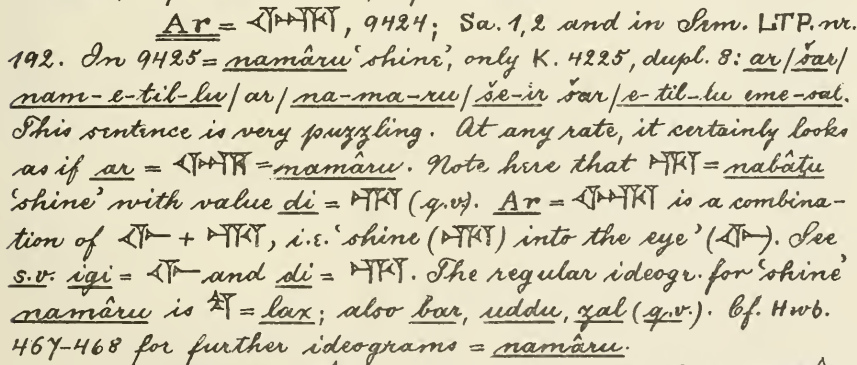 Ar = 𒅈, 9424; Sa. 1,2 and in Srm. LTP. nr.
192. In 9425 = namâru 'shine', only K. 4225, dupl. 8: ar/šar/
nam-e-til-lu/ar/na-ma-ru/še-ir šar/e-til-lu eme-sal.
This sentence is very puzzling. At any rate, it certainly looks
as if ar = 𒅈 = namâru. Note here that 𒊑 = nabâṭu
'shine' with value di = 𒊑 (q.v.). Ar = 𒅈 is a combina-
tion of 𒅆 + 𒊑, i.e. 'shine (𒊑) into the eye' (𒅆). See
s.v. igi = 𒅆 and di = 𒊑. The regular ideogr. for 'shine'
namâru is 𒌓 = lax; also bar, uddu, zal (q.v.). Cf. Hwb.
467-468 for further ideograms = namâru.